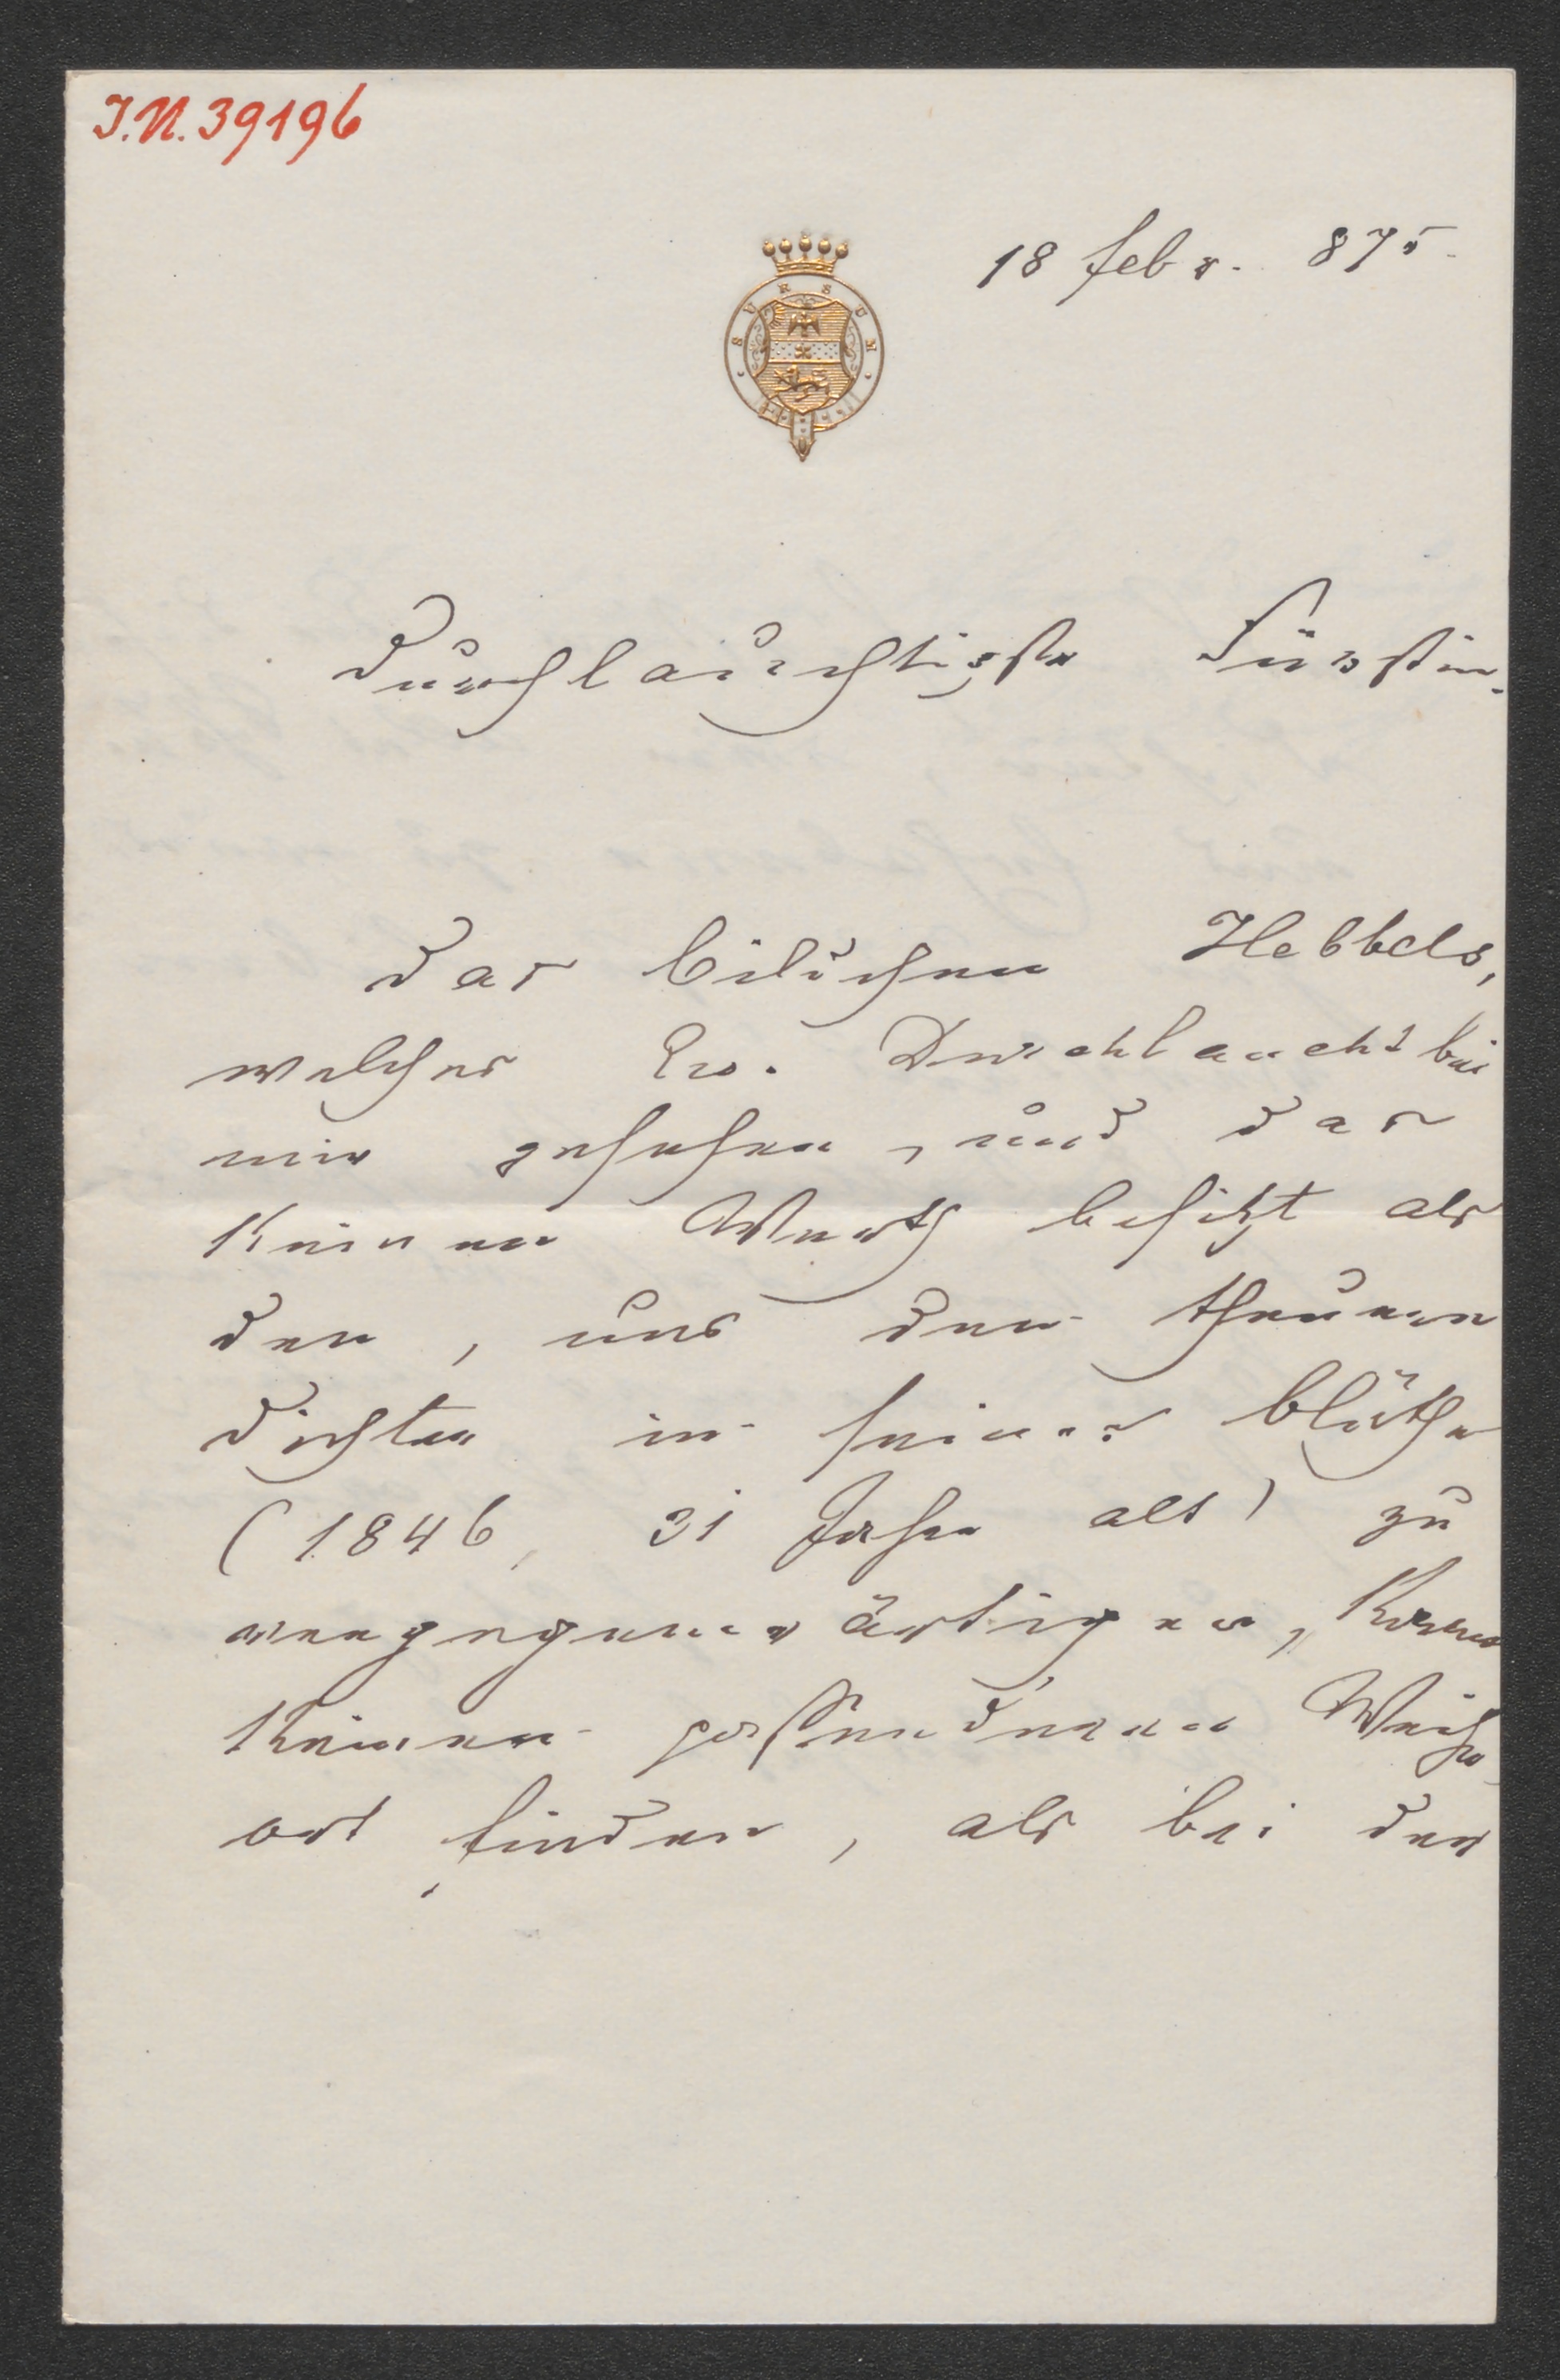 I.N. 39196
18 febr. 875.
SURSUM
Durchlauchtigste Fürstin.
Das Bildchen Hebbels,
welches Ew. Durchlaucht bei
mir gesehen, und das
keinen Werth besitzt als
den, uns den theuern
Dichter in seiner Blüthe
(1846, 31 Jahre alt) zu
vergegenwärtigen, kann
keinen passenderen Weihe-
ort finden, als bei der